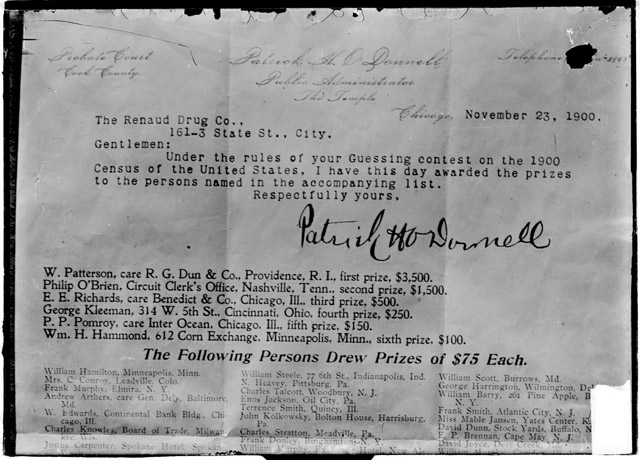 Probate Court
Cook County.
Patrick H. O'Donnell,
Public Administrator
The Temple
Telephone
Chicago, November 23, 1900.
The Renaud Drug Co.,
161-3 State St., City.
Gentlemen:
Under the rules of your Guessing contest on the 1900
Census of the United States, I have this day awarded the prizes
to the persons named in the accompanying list.
Respectfully yours,
Patrick H O'Donnell
W. Patterson, care R. G. Dun & Co., Providence, R. I., first prize, $3,500.
Philip O'Brien, Circuit Clerk's Office, Nashville, Tenn., second prize, $1,500.
E. E. Richards, care Benedict & Co., Chicago, Ill., third prize, $500.
George Kleeman, 314 W. 5th St., Cincinnati, Ohio, fourth prize, $250.
P. P. Pomroy, care Inter Ocean, Chicago, Ill., fifth prize, $150.
Wm. H. Hammond, 612 Corn Exchange, Minneapolis, Minn., sixth prize, $100.
The Following Persons Drew Prizes of $75 Each.
William Hamilton, Minneapolis, Minn.
Mrs. C. Conroy, Leadville, Colo.
Frank Murphy, Elmira, N. Y.
Andrew Arthers, care Gen. Dely, Baltimore,
Md.
W. Edwards, Continental Bank Bldg., Chi-
cago, Ill.
Charles Knowles, Board of Trade, Milwau-
kee, Wis.
Justus Carpenter, Spokane Hotel, Spokane
William Steele, 77 6th St., Indianapolis, Ind.
N. Heavey, Pittsburg, Pa.
Charles Talcott, Woodbury, N. J.
Enos Jackson, Oil City, Pa.
Terrence Smith, Quincy, Ill.
John Kolkowsky, Bolton House, Harrisburg,
Pa.
Charles Stratton, Meadville, Pa.
Frank Donley, Binghamton, N. Y.
William Murphy,
William Scott, Burrows, Md.
George Harrington, Wilmington, Del
William Barry, 261 Pine Apple, B
N. Y.
Frank Smith, Atlantic City, N. J.
Miss Mable Jansen, Yates Center, K
David Dunn, Stock Yards, Buffalo, N
E. P. Brennan, Cape May, N. J.
David Joyce, Deer Creek,